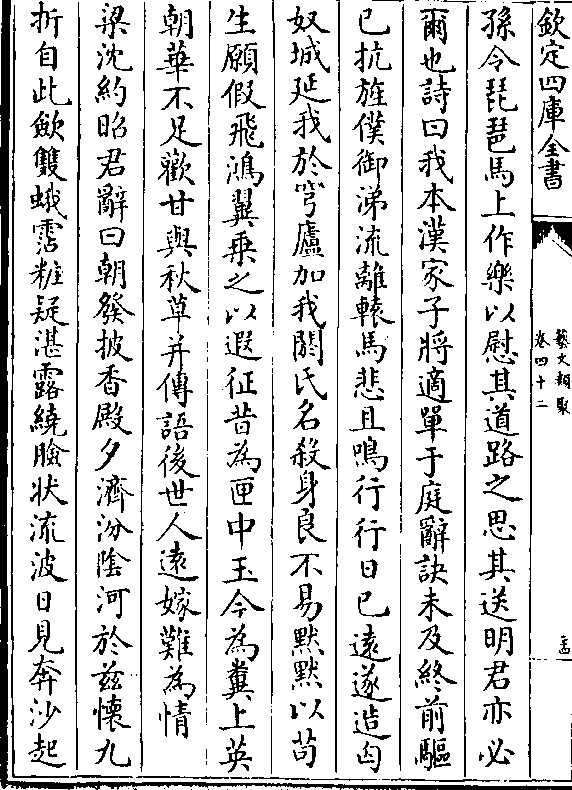 欽定四庫全書
藝文類聚
卷四十二
孫令琵琶馬上作樂以慰其道路之思其送明君亦必
爾也詩曰我本漢家子將適單于庭辭訣未及終前驅
已抗旌僕御涕流離轅馬悲且鳴行行日已遠遂造匈
奴城延我於穹廬加我閼氏名殺身良不易黙黙以茍
生願假飛鴻翼乗之以遐征昔為匣中玉今為糞上英
朝華不足歡甘與秋草并傳語後世人遠嫁難為情
梁沈約昭君辭曰朝發披香殿夕濟汾隂河於兹懷九
折自此斂雙蛾霑粧疑湛露繞臉狀流波日見奔沙起